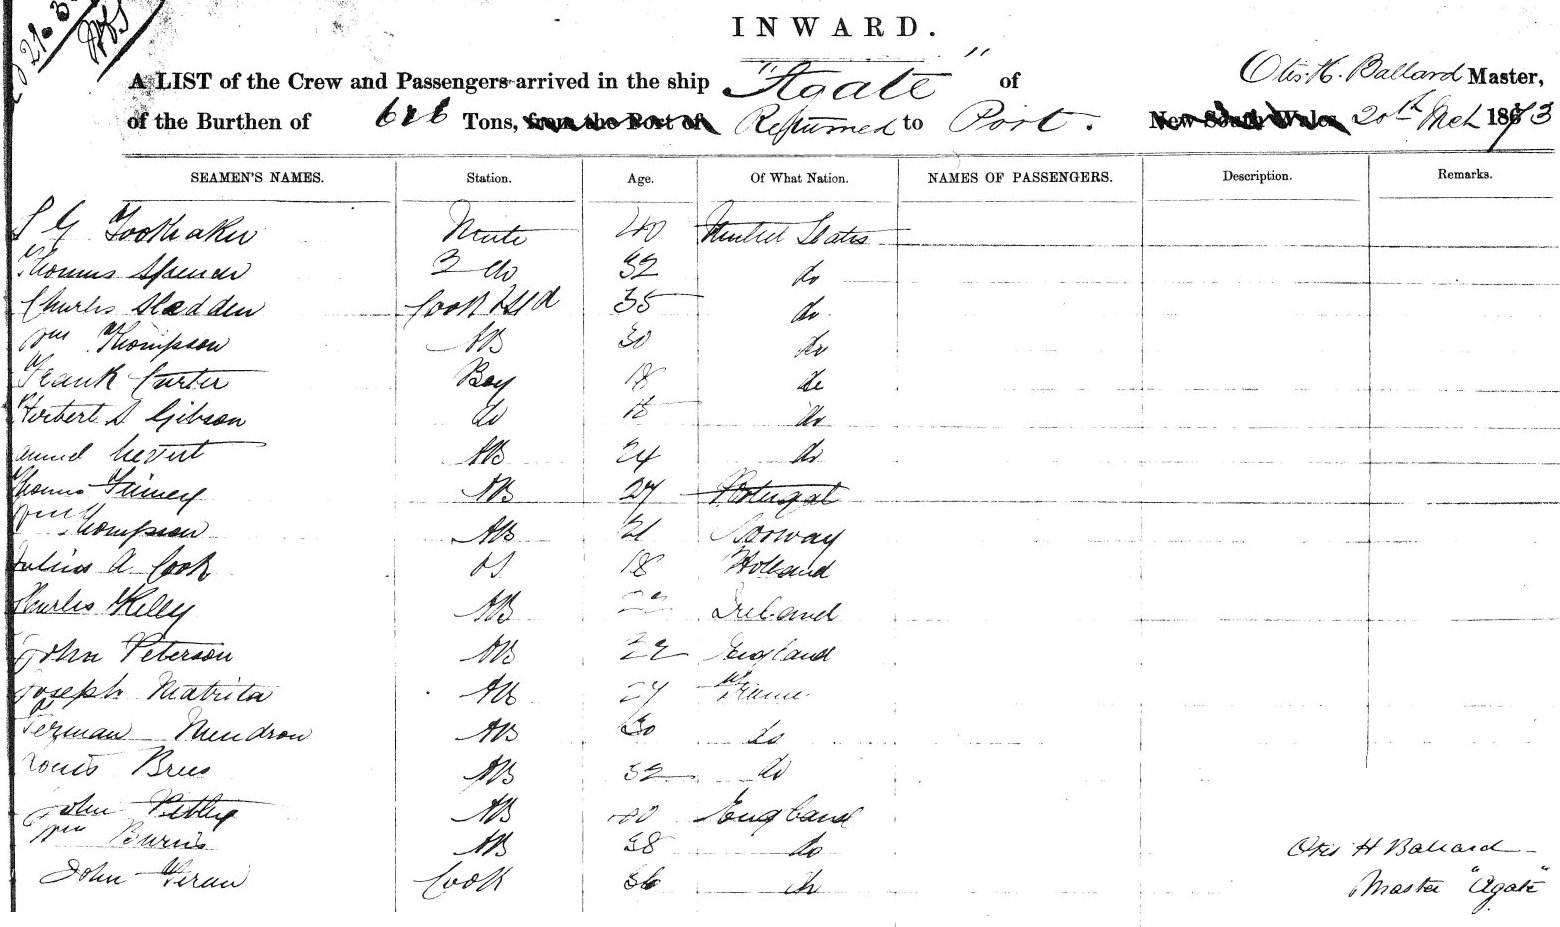 INWARD.
A LIST of the Crew and Passengers arrived in the ship "Agate" of Otis H. Ballard Master,
of the Burthen of Tons, from the Port of Returned to Port. New South Wales 20th Mch 1873
SEAMEN'S NAMES. Station. Age. Of What Nation. NAMES OF PASSENGERS. Description. Remarks.
S G Mate 40 United States
Thomas Spencer 2 do 32 do
Charles Cook & Std 35 do
Wm Thompson AB 30 do
Frank Carter Boy 18 do
Herbert S Gibson do do
AB 24 do
Thomas Finney AB 27 Portugal
Wm Thompson AB 21 Norway
Julius A Cook OS 18 Holland
Charles Kelly AB Ireland
John Peterson AB 22 England
Joseph AB 27 France
AB 30 do
Louis AB 32 do
John AB England
Wm Burns AB 38 do
John Cook 36 do
Otis H Ballard
Master "Agate"